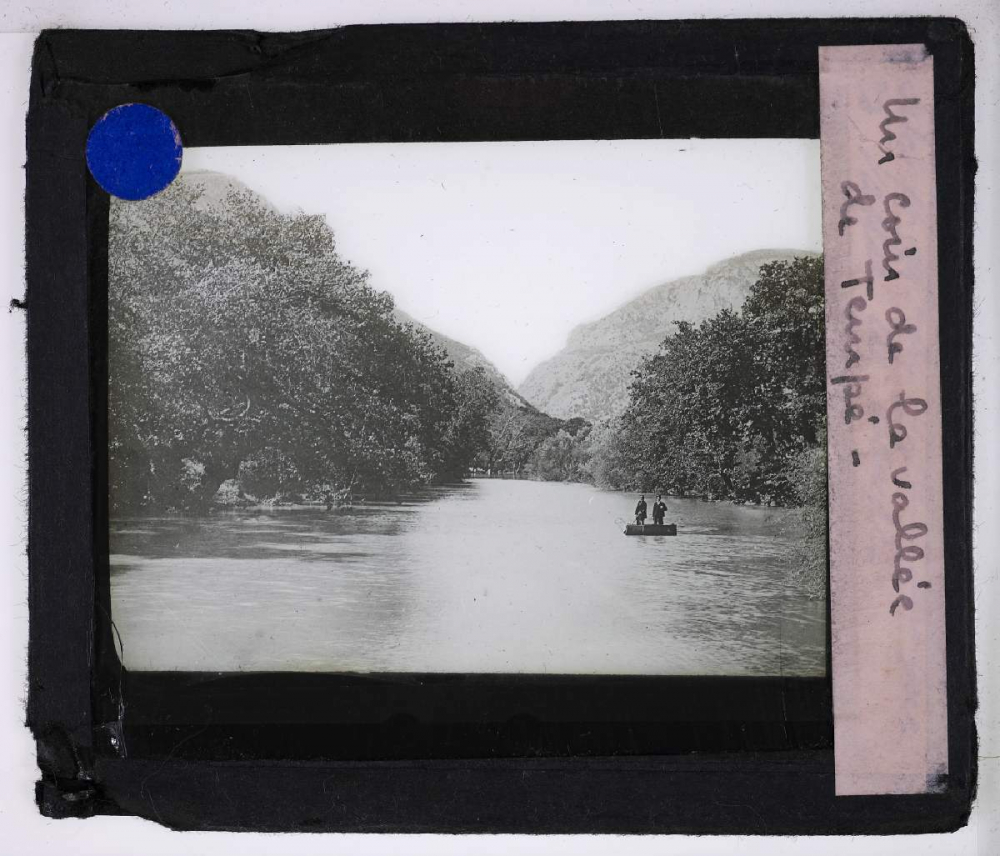 Un coin de la vallée
de Tempé -